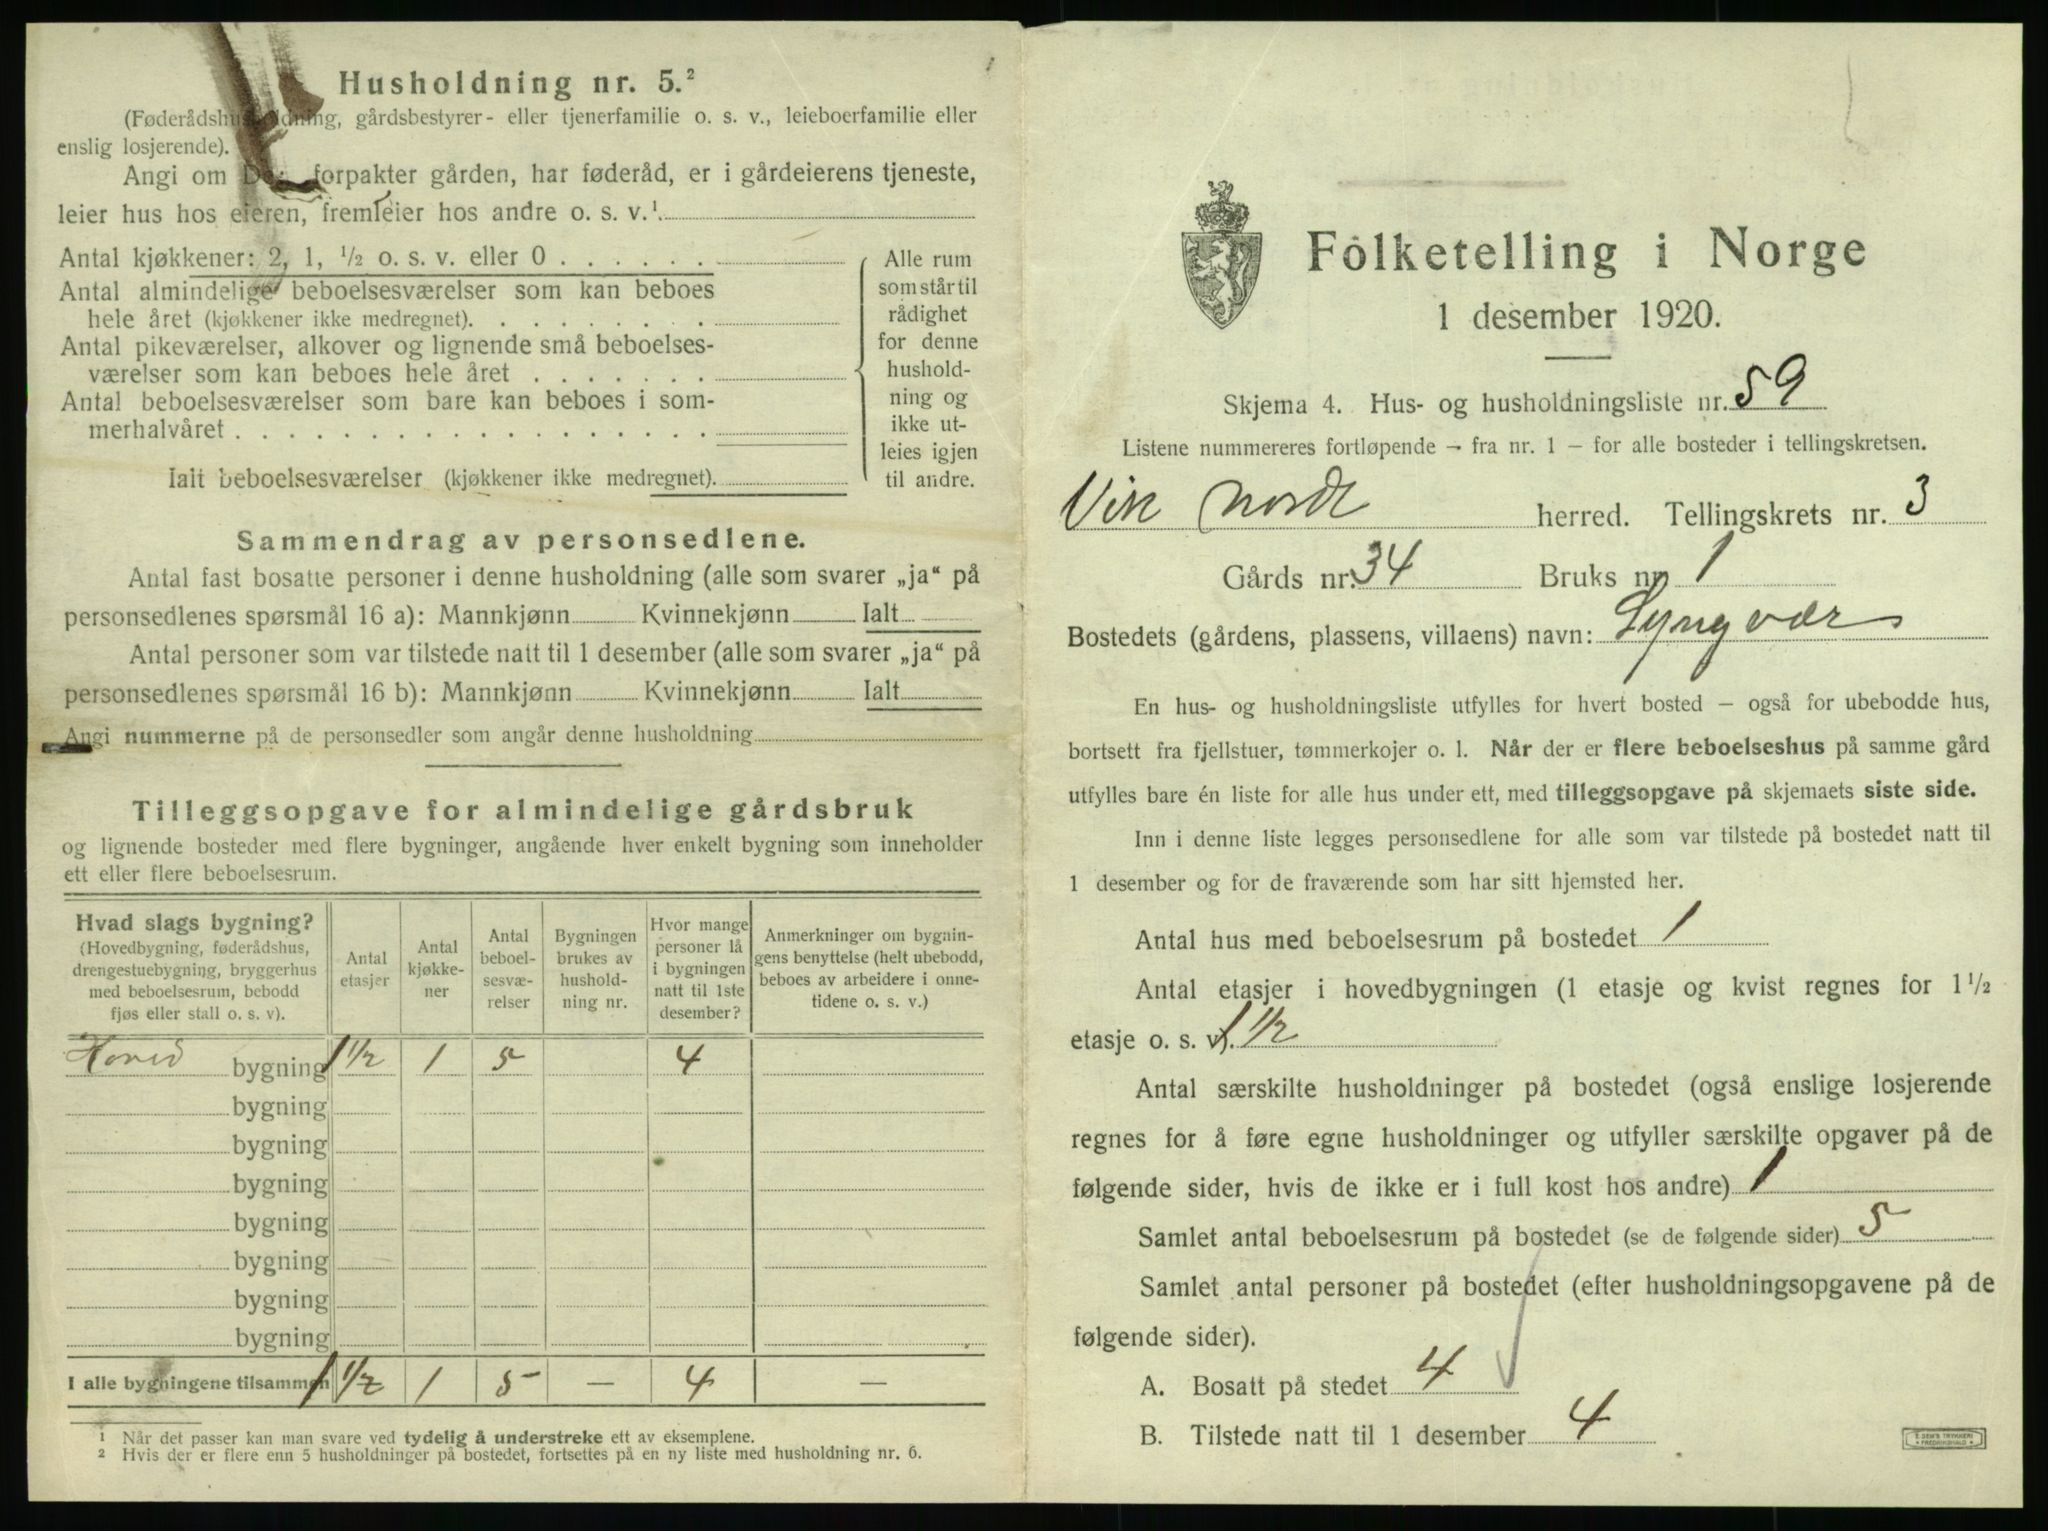 Husholdning nr. 5.²
(Føderådshusholdning, gårdsbestyrer- eller tjenerfamilie o. s. v., leieboerfamilie eller
enslig losjerende).
Angi om De: forpakter gården, har føderåd, er i gårdeierens tjeneste,
leier hus hos eieren, fremleier hos andre o. s. v.¹
Antal kjøkkener: 2, 1, ½ o. s. v. eller 0
Antal almindelige beboelsesværelser som kan beboes
hele året (kjøkkener ikke medregnet).
Antal pikeværelser, alkover og lignende små beboelses-
værelser som kan beboes hele året
Antal beboelsesværelser som bare kan beboes i som-
merhalvåret
Ialt beboelsesværelser (kjøkkener ikke medregnet).
Alle rum
som står til
rådighet
for denne
hushold-
ning og
ikke ut-
leies igjen
til andre.
Sammendrag av personsedlene.
Antal fast bosatte personer i denne husholdning (alle som svarer „ja“ på
personsedlenes spørsmål 16 a): Mannkjønn Kvinnekjønn Ialt
Antal personer som var tilstede natt til 1 desember (alle som svarer „ja“ på
personsedlenes spørsmål 16 b): Mannkjønn Kvinnekjønn Ialt
Angi nummerne på de personsedler som angår denne husholdning
Tilleggsopgave for almindelige gårdsbruk
og lignende bosteder med flere bygninger, angående hver enkelt bygning som inneholder
ett eller flere beboelsesrum.
Hvad slags bygning?
(Hovedbygning, føderådshus,
drengestuebygning, bryggerhus
med beboelsesrum, bebodd
fjøs eller stall o. s. v).
Antal
etasjer
Antal
kjøkke-
ner
Antal
beboel-
sesvæ-
relser
Bygningen
brukes av
hushold-
ning nr.
Hvor mange
personer lå
i bygningen
natt til 1ste
desember?
Anmerkninger om bygnin-
gens benyttelse (helt ubebodd,
beboes av arbeidere i onne-
tidene o. s. v.)
Hoved bygning 1 ½ 1 5 4
bygning
bygning
bygning
bygning
bygning
bygning
bygning
I alle bygningene tilsammen 1 ½ 1 5 — 4 —
¹ Når det passer kan man svare ved tydelig å understreke ett av eksemplene.
² Hvis der er flere enn 5 husholdninger på bostedet, fortsettes på en ny liste med husholdning nr. 6.
Folketelling i Norge
1 desember 1920.
Skjema 4. Hus- og husholdningsliste nr. 59
Listene nummereres fortløpende – fra nr. 1 – for alle bosteder i tellingskretsen.
Vik nordr herred. Tellingskrets nr. 3
Gårds nr. 34 Bruks nr. 1
Bostedets (gårdens, plassens, villaens) navn: Lyngvær
En hus- og husholdningsliste utfylles for hvert bosted – også for ubebodde hus,
bortsett fra fjellstuer, tømmerkojer o. l. Når der er flere beboelseshus på samme gård
utfylles bare én liste for alle hus under ett, med tilleggsopgave på skjemaets siste side.
Inn i denne liste legges personsedlene for alle som var tilstede på bostedet natt til
1 desember og for de fraværende som har sitt hjemsted her.
Antal hus med beboelsesrum på bostedet 1
Antal etasjer i hovedbygningen (1 etasje og kvist regnes for 1½
etasje o. s. v). 1 ½
Antal særskilte husholdninger på bostedet (også enslige losjerende
regnes for å føre egne husholdninger og utfyller særskilte opgaver på de
følgende sider, hvis de ikke er i full kost hos andre) 1
Samlet antal beboelsesrum på bostedet (se de følgende sider) 5
Samlet antal personer på bostedet (efter husholdningsopgavene på de
følgende sider).
A. Bosatt på stedet 4
B. Tilstede natt til 1 desember 4